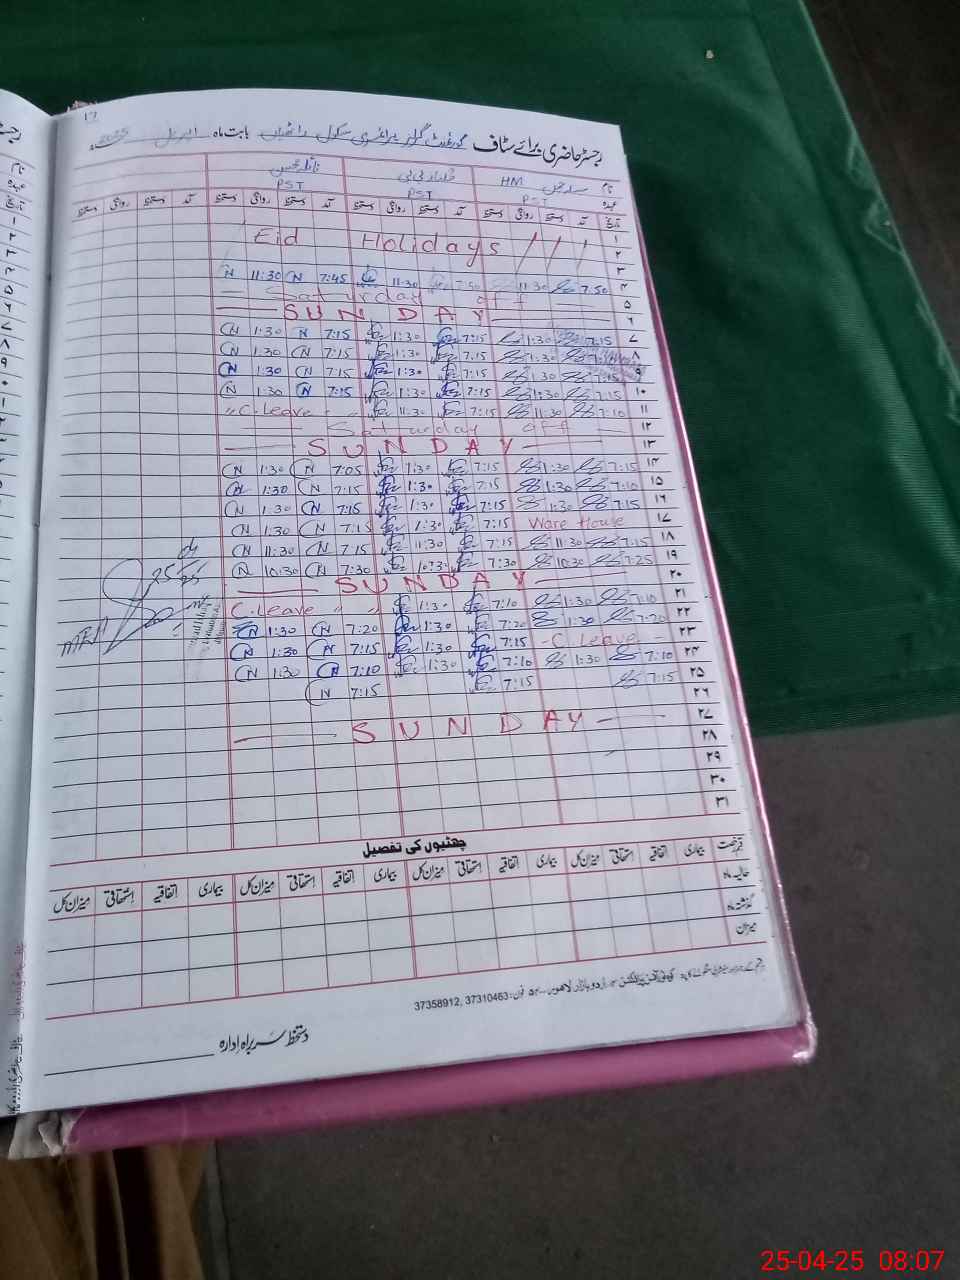 17
رجسٹر حاضری برائے سٹاف گورنمنٹ گرلز پرائمری سکول بابت ماہ اپریل 2025ء
نام HM
عہدہ PST PST PST
تاریخ آمد دستخط روانگی دستخط آمد دستخط روانگی دستخط آمد دستخط روانگی دستخط آمد دستخط روانگی دستخط
۱ Eid Holidays
۲
۳
۴ 7:50 11:30 7:50 11:30 7:45 N 11:30 N
۵ Saturday off
۶ SUNDAY
۷ 7:15 1:30 7:15 1:30 7:15 N 1:30 N
۸ 1:30 7:15 1:30 7:15 N 1:30 N
۹ 7:15 1:30 7:15 1:30 7:15 N 1:30 N
۱۰ 7:15 1:30 7:15 1:30 7:15 N 1:30 N
۱۱ 7:10 11:30 7:15 11:30 " C.Leave " "
۱۲ Saturday off
۱۳ SUNDAY
۱۴ 7:15 1:30 7:15 1:30 7:05 N 1:30 N
۱۵ 7:10 1:30 7:15 1:30 7:15 N 1:30 N
۱۶ 7:15 1:30 7:15 1:30 7:15 N 1:30 N
۱۷ Ware House 7:15 1:30 7:15 N 1:30 N
۱۸ 7:15 11:30 7:15 11:30 7:15 N 11:30 N
۱۹ 7:25 10:30 7:30 10:30 7:30 N 10:30 N
۲۰ SUNDAY
۲۱ 7:10 1:30 7:10 1:30 C.Leave " "
۲۲ 7:20 1:30 7:20 1:30 7:20 N 1:30 N
۲۳ - C Leave - 7:15 1:30 7:15 N 1:30 N
۲۴ 7:10 1:30 7:10 1:30 7:10 N 1:30 N
۲۵ 7:15 7:15 7:15 N
۲۶
۲۷ SUNDAY
۲۸
۲۹
۳۰
۳۱
چھٹیوں کی تفصیل
قسم رخصت بیماری اتفاقیہ استحقاقی میزان کل بیماری اتفاقیہ استحقاقی میزان کل بیماری اتفاقیہ استحقاقی میزان کل
حالیہ ماہ
گذشتہ ماہ
میزان
اردو بازار لاہور۔ فون: 37310463, 37358912
دستخط سربراہ ادارہ
25-04-25 08:07